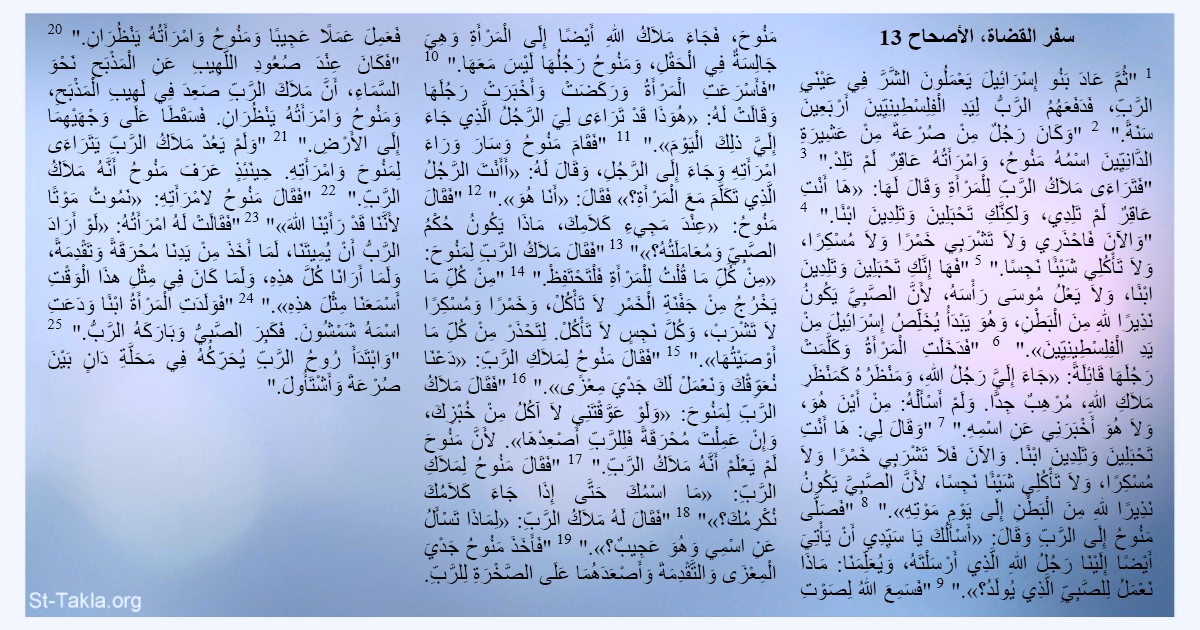 سفر القضاة، الأصحاح 13
1 "ثُمَّ عَادَ بَنُو إِسْرَائِيلَ يَعْمَلُونَ الشَّرَّ فِي عَيْنَيِ
الرَّبِّ، فَدَفَعَهُمُ الرَّبُّ لِيَدِ الْفِلِسْطِينِيِّينَ أَرْبَعِينَ
سَنَةً." 2 "وَكَانَ رَجُلٌ مِنْ صُرْعَةَ مِنْ عَشِيرَةِ
الدَّانِيِّينَ اسْمُهُ مَنُوحُ، وَامْرَأَتُهُ عَاقِرٌ لَمْ تَلِدْ." 3
"فَتَرَاءَى مَلاَكُ الرَّبِّ لِلْمَرْأَةِ وَقَالَ لَهَا: «هَا أَنْتِ
عَاقِرٌ لَمْ تَلِدِي، وَلكِنَّكِ تَحْبَلِينَ وَتَلِدِينَ ابْنًا." 4
"وَالآنَ فَاحْذَرِي وَلاَ تَشْرَبِي خَمْرًا وَلاَ مُسْكِرًا،
وَلاَ تَأْكُلِي شَيْئًا نَجِسًا." 5 "فَهَا إِنَّكِ تَحْبَلِينَ وَتَلِدِينَ
ابْنًا، وَلاَ يَعْلُ مُوسَى رَأْسَهُ، لأَنَّ الصَّبِيَّ يَكُونُ
نَذِيرًا للهِ مِنَ الْبَطْنِ، وَهُوَ يَبْدَأُ يُخَلِّصُ إِسْرَائِيلَ مِنْ
يَدِ الْفِلِسْطِينِيِّينَ»." 6 "فَدَخَلَتِ الْمَرْأَةُ وَكَلَّمَتْ
رَجُلَهَا قَائِلَةً: «جَاءَ إِلَيَّ رَجُلُ اللهِ، وَمَنْظَرُهُ كَمَنْظَرِ
مَلاَكِ اللهِ، مُرْهِبٌ جِدًّا. وَلَمْ أَسْأَلْهُ: مِنْ أَيْنَ هُوَ،
وَلاَ هُوَ أَخْبَرَنِي عَنِ اسْمِهِ." 7 "وَقَالَ لِي: هَا أَنْتِ
تَحْبَلِينَ وَتَلِدِينَ ابْنًا. وَالآنَ فَلاَ تَشْرَبِي خَمْرًا وَلاَ
مُسْكِرًا، وَلاَ تَأْكُلِي شَيْئًا نَجِسًا، لأَنَّ الصَّبِيَّ يَكُونُ
نَذِيرًا للهِ مِنَ الْبَطْنِ إِلَى يَوْمِ مَوْتِهِ»." 8 "فَصَلَّى
مَنُوحُ إِلَى الرَّبِّ وَقَالَ: «أَسْأَلُكَ يَا سَيِّدِي أَنْ يَأْتِيَ
أَيْضًا إِلَيْنَا رَجُلُ اللهِ الَّذِي أَرْسَلْتَهُ، وَيُعَلِّمَنَا: مَاذَا
نَعْمَلُ لِلصَّبِيِّ الَّذِي يُولَدُ؟»." 9 "فَسَمِعَ اللهُ لِصَوْتِ
مَنُوحَ، فَجَاءَ مَلاَكُ اللهِ أَيْضًا إِلَى الْمَرْأَةِ وَهِيَ
جَالِسَةٌ فِي الْحَقْلِ، وَمَنُوحُ رَجُلُهَا لَيْسَ مَعَهَا." 10
"فَأَسْرَعَتِ الْمَرْأَةُ وَرَكَضَتْ وَأَخْبَرَتْ رَجُلَهَا
وَقَالَتْ لَهُ: «هُوَذَا قَدْ تَرَاءَى لِيَ الرَّجُلُ الَّذِي جَاءَ
إِلَيَّ ذلِكَ الْيَوْمَ»." 11 "فَقَامَ مَنُوحُ وَسَارَ وَرَاءَ
امْرَأَتِهِ وَجَاءَ إِلَى الرَّجُلِ، وَقَالَ لَهُ: «أَأَنْتَ الرَّجُلُ
الَّذِي تَكَلَّمَ مَعَ الْمَرْأَةِ؟» فَقَالَ: «أَنَا هُوَ»." 12 "فَقَالَ
مَنُوحُ: «عِنْدَ مَجِيءِ كَلاَمِكَ، مَاذَا يَكُونُ حُكْمُ
الصَّبِيِّ وَمُعَامَلَتُهُ؟»" 13 "فَقَالَ مَلاَكُ الرَّبِّ لِمَنُوحَ:
«مِنْ كُلِّ مَا قُلْتُ لِلْمَرْأَةِ فَلْتَحْتَفِظْ." 14 "مِنْ كُلِّ مَا
يَخْرُجُ مِنْ جَفْنَةِ الْخَمْرِ لاَ تَأْكُلْ، وَخَمْرًا وَمُسْكِرًا
لاَ تَشْرَبْ، وَكُلَّ نَجِسٍ لاَ تَأْكُلْ. لِتَحْذَرْ مِنْ كُلِّ مَا
أَوْصَيْتُهَا»." 15 "فَقَالَ مَنُوحُ لِمَلاَكِ الرَّبِّ: «دَعْنَا
نُعَوِّقْكَ وَنَعْمَلْ لَكَ جَدْيَ مِعْزًى»." 16 "فَقَالَ مَلاَكُ
الرَّبِّ لِمَنُوحَ: «وَلَوْ عَوَّقْتَنِي لاَ آكُلُ مِنْ خُبْزِكَ،
وَإِنْ عَمِلْتَ مُحْرَقَةً فَلِلرَّبِّ أَصْعِدْهَا». لأَنَّ مَنُوحَ
لَمْ يَعْلَمْ أَنَّهُ مَلاَكُ الرَّبِّ." 17 "فَقَالَ مَنُوحُ لِمَلاَكِ
الرَّبِّ: «مَا اسْمُكَ حَتَّى إِذَا جَاءَ كَلاَمُكَ
نُكْرِمُكَ؟»" 18 "فَقَالَ لَهُ مَلاَكُ الرَّبِّ: «لِمَاذَا تَسْأَلُ
عَنِ اسْمِي وَهُوَ عَجِيبٌ؟»." 19 "فَأَخَذَ مَنُوحُ جَدْيَ
الْمِعْزَى وَالتَّقْدِمَةَ وَأَصْعَدَهُمَا عَلَى الصَّخْرَةِ لِلرَّبِّ.
فَعَمِلَ عَمَلًا عَجِيبًا وَمَنُوحُ وَامْرَأَتُهُ يَنْظُرَانِ." 20
"فَكَانَ عِنْدَ صُعُودِ اللَّهِيبِ عَنِ الْمَذْبَحِ نَحْوَ
السَّمَاءِ، أَنَّ مَلاَكَ الرَّبِّ صَعِدَ فِي لَهِيبِ الْمَذْبَحِ،
وَمَنُوحُ وَامْرَأَتُهُ يَنْظُرَانِ. فَسَقَطَا عَلَى وَجْهَيْهِمَا
إِلَى الأَرْضِ." 21 "وَلَمْ يَعُدْ مَلاَكُ الرَّبِّ يَتَرَاءَى
لِمَنُوحَ وَامْرَأَتِهِ. حِينَئِذٍ عَرَفَ مَنُوحُ أَنَّهُ مَلاَكُ
الرَّبِّ." 22 "فَقَالَ مَنُوحُ لامْرَأَتِهِ: «نَمُوتُ مَوْتًا
لأَنَّنَا قَدْ رَأَيْنَا اللهَ»" 23 "فَقَالَتْ لَهُ امْرَأَتُهُ: «لَوْ أَرَادَ
الرَّبُّ أَنْ يُمِيتَنَا، لَمَا أَخَذَ مِنْ يَدِنَا مُحْرَقَةً وَتَقْدِمَةً،
وَلَمَا أَرَانَا كُلَّ هذِهِ، وَلَمَا كَانَ فِي مِثْلِ هذَا الْوَقْتِ
أَسْمَعَنَا مِثْلَ هذِهِ»." 24 "فَوَلَدَتِ الْمَرْأَةُ ابْنًا وَدَعَتِ
اسْمَهُ شَمْشُونَ. فَكَبِرَ الصَّبِيُّ وَبَارَكَهُ الرَّبُّ." 25
"وَابْتَدَأَ رُوحُ الرَّبِّ يُحَرِّكُهُ فِي مَحَلَّةِ دَانٍ بَيْنَ
صُرْعَةَ وَأَشْتَأُولَ."
St-Takla.org